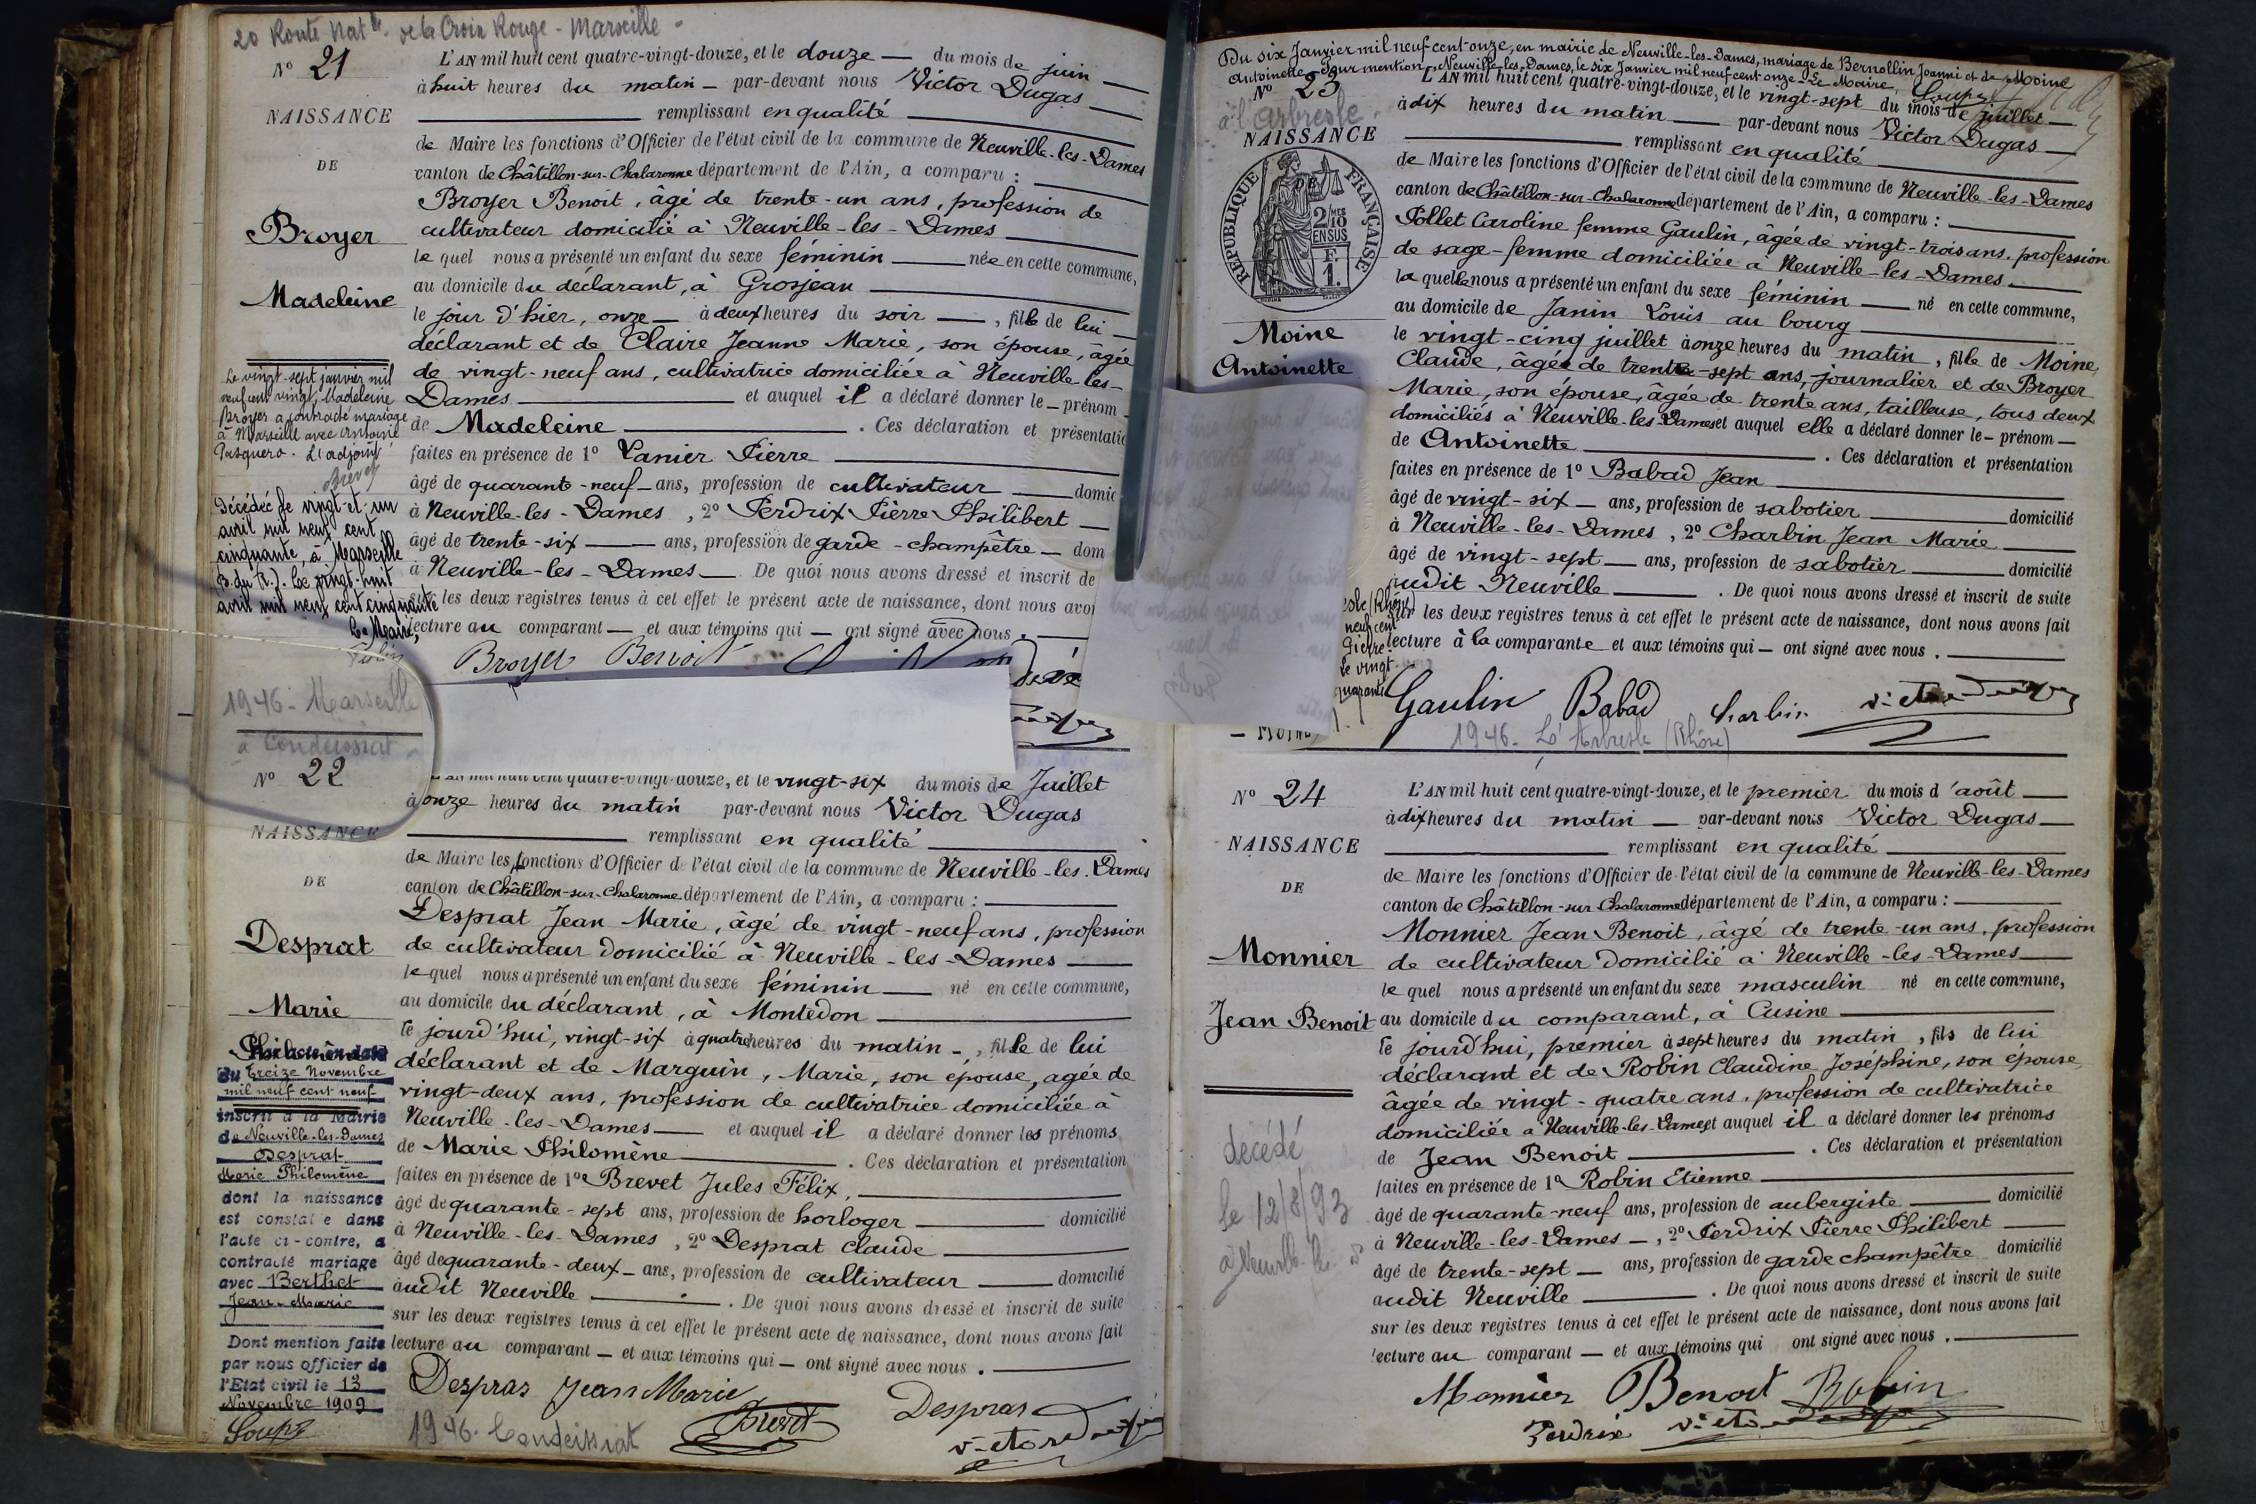 20 Route Nat.le de la Croix Rouge - Marseille -
N° 21
NAISSANCE
DE
Broyer
Madeleine
Le vingt-sept janvier mil
neuf cent vingt, Madeleine
Broyer a contracté mariage
à Marseille avec Antoine
Pasquero. L'adjoint
Brevet
Décédée le vingt-et-un
avril mil neuf cent
cinquante, à Marseille
B. du R.J. Le vingt-huit
avril mil neuf cent cinquante
Le Maire,
L'AN mil huit cent quatre-vingt-douze, et le douze — du mois de juin
à huit heures du matin — par-devant nous Victor Dugas
remplissant en qualité
de Maire les fonctions d'Officier de l'état civil de la commune de Neuville-les-Dames
canton de Châtillon-sur-Chalaronne département de l'Ain, a comparu :
Broyer Benoit, âgé de trente-un ans, profession de
cultivateur domicilié à Neuville-les-Dames
le quel nous a présenté un enfant du sexe féminin — née en cette commune,
au domicile du déclarant, à Grosjean
le jour d'hier, onze — à deux heures du soir —, fille de lui
déclarant et de Claire Jeanne Marie, son épouse, âgée
de vingt-neuf ans, cultivatrice domiciliée à Neuville-les-
Dames — et auquel il a déclaré donner le — prénom
de Madeleine — . Ces déclaration et présentatio
faites en présence de 1° Lanier Pierre
âgé de quarante-neuf — ans, profession de cultivateur — domic
à Neuville-les-Dames, 2° Perdrix Pierre Philibert —
âgé de trente-six — ans, profession de garde-champêtre — dom
à Neuville-les-Dames — De quoi nous avons dressé et inscrit de
sur les deux registres tenus à cet effet le présent acte de naissance, dont nous avo
lecture au comparant — et aux témoins qui — ont signé avec nous.
Broyer Benoit
1946 - Marseille
à Condeissiat
N° 22
NAISSANCE
DE
Desprat
Marie
Philomène
Par acte en date
du Treize Novembre
mil neuf cent neuf
inscrit à la Mairie
de Neuville-les-Dames
Desprat
Marie Philomène
dont la naissance
est constatée dans
l'acte ci-contre, a
contracté mariage
avec Berthet
Jean-Marie
Dont mention faite
par nous officier de
l'Etat civil le 13
Novembre 1909
Loups
L'AN mil huit cent quatre-vingt-douze, et le vingt-six du mois de Juillet
à onze heures du matin par-devant nous Victor Dugas
remplissant en qualité
de Maire les fonctions d'Officier de l'état civil de la commune de Neuville-les-Dames
canton de Châtillon-sur-Chalaronne département de l'Ain, a comparu :
Desprat Jean Marie, âgé de vingt-neuf ans, profession
de cultivateur domicilié à Neuville-les-Dames
le quel nous a présenté un enfant du sexe féminin — né en cette commune,
au domicile du déclarant, à Montédon
le jourd'hui, vingt-six à quatre heures du matin -, fille de lui
déclarant et de Marguin, Marie, son épouse, agée de
vingt-deux ans, profession de cultivatrice domiciliée à
Neuville-les-Dames — et auquel il a déclaré donner les prénoms
de Marie Philomène — . Ces déclaration et présentation
faites en présence de 1° Brevet Jules Félix,
âgé de quarante-sept ans, profession de horloger — domicilié
à Neuville-les-Dames, 2° Desprat Claude
âgé de quarante-deux — ans, profession de cultivateur — domicilié
audit Neuville — . De quoi nous avons dressé et inscrit de suite
sur les deux registres tenus à cet effet le présent acte de naissance, dont nous avons fait
lecture au comparant — et aux témoins qui — ont signé avec nous.
Despras Jean Marie
Brevet
Despras
1946. Condeissiat
Du six Janvier mil neuf cent onze, en mairie de Neuville-les-Dames, mariage de Bernollin Joanni et de Moine
Antoinette. Pour mention, Neuville-les-Dames, le six Janvier mil neuf cent onze - Le Maire, Loups
N° 23
à l'Arbresle.
NAISSANCE
RÉPUBLIQUE FRANÇAISE
2/10MES
EN SUS
F.
1.
Moine
Antoinette
L'AN mil huit cent quatre-vingt-douze, et le vingt-sept du mois de juillet —
à dix heures du matin — par-devant nous Victor Dugas —
remplissant en qualité
de Maire les fonctions d'Officier de l'état civil de la commune de Neuville-les-Dames
canton de Châtillon-sur-Chalaronne département de l'Ain, a comparu :
Pollet Caroline femme Gaulin, âgée de vingt-trois ans, profession
de sage-femme domiciliée à Neuville-les-Dames
la quelle nous a présenté un enfant du sexe féminin — né en cette commune,
au domicile de Janin Louis au bourg
le vingt-cinq juillet à onze heures du matin, fille de Moine,
Claude, âgée de trente-sept ans, journalier et de Broyer
Marie, son épouse, âgée de trente ans, tailleuse, tous deux
domiciliés à Neuville-les-Dames et auquel elle a déclaré donner le — prénom —
de Antoinette — . Ces déclaration et présentation
faites en présence de 1° Babad Jean
âgé de vingt-six — ans, profession de sabotier — domicilié
à Neuville-les-Dames, 2° Charbin Jean Marie
âgé de vingt-sept — ans, profession de sabotier — domicilié
audit Neuville — . De quoi nous avons dressé et inscrit de suite
sur les deux registres tenus à cet effet le présent acte de naissance, dont nous avons fait
lecture à la comparante et aux témoins qui — ont signé avec nous.
esle (Rhône)
neuf cent
Pierre
Le vingt
quarante
Gaulin Babad Charbin
1946. L'Arbresle (Rhône)
N° 24
NAISSANCE
DE
Monnier
Jean Benoit
décédé
le 12/8/93
à Neuville-les-D
L'AN mil huit cent quatre-vingt-douze, et le premier du mois d'août —
à dix heures du matin — par-devant nous Victor Dugas —
remplissant en qualité
de Maire les fonctions d'Officier de l'état civil de la commune de Neuville-les-Dames
canton de Châtillon-sur-Chalaronne département de l'Ain, a comparu :
Monnier Jean Benoit, âgé de trente-un ans, profession
de cultivateur domicilié à Neuville-les-Dames
le quel nous a présenté un enfant du sexe masculin né en cette commune,
au domicile du comparant, à Cusine
le jourd'hui, premier à sept heures du matin, fils de lui
déclarant et de Robin Claudine Joséphine, son épouse,
âgée de vingt-quatre ans, profession de cultivatrice
domiciliée à Neuville-les-Dames et auquel il a déclaré donner les prénoms
de Jean Benoit — . Ces déclaration et présentation
faites en présence de 1° Robin Etienne
âgé de quarante-neuf ans, profession de aubergiste — domicilié
à Neuville-les-Dames —, 2° Perdrix Pierre Philibert
âgé de trente-sept — ans, profession de garde champêtre domicilié
audit Neuville — . De quoi nous avons dressé et inscrit de suite
sur les deux registres tenus à cet effet le présent acte de naissance, dont nous avons fait
lecture au comparant — et aux témoins qui ont signé avec nous.
Monnier Benoit Robin
Perdrix